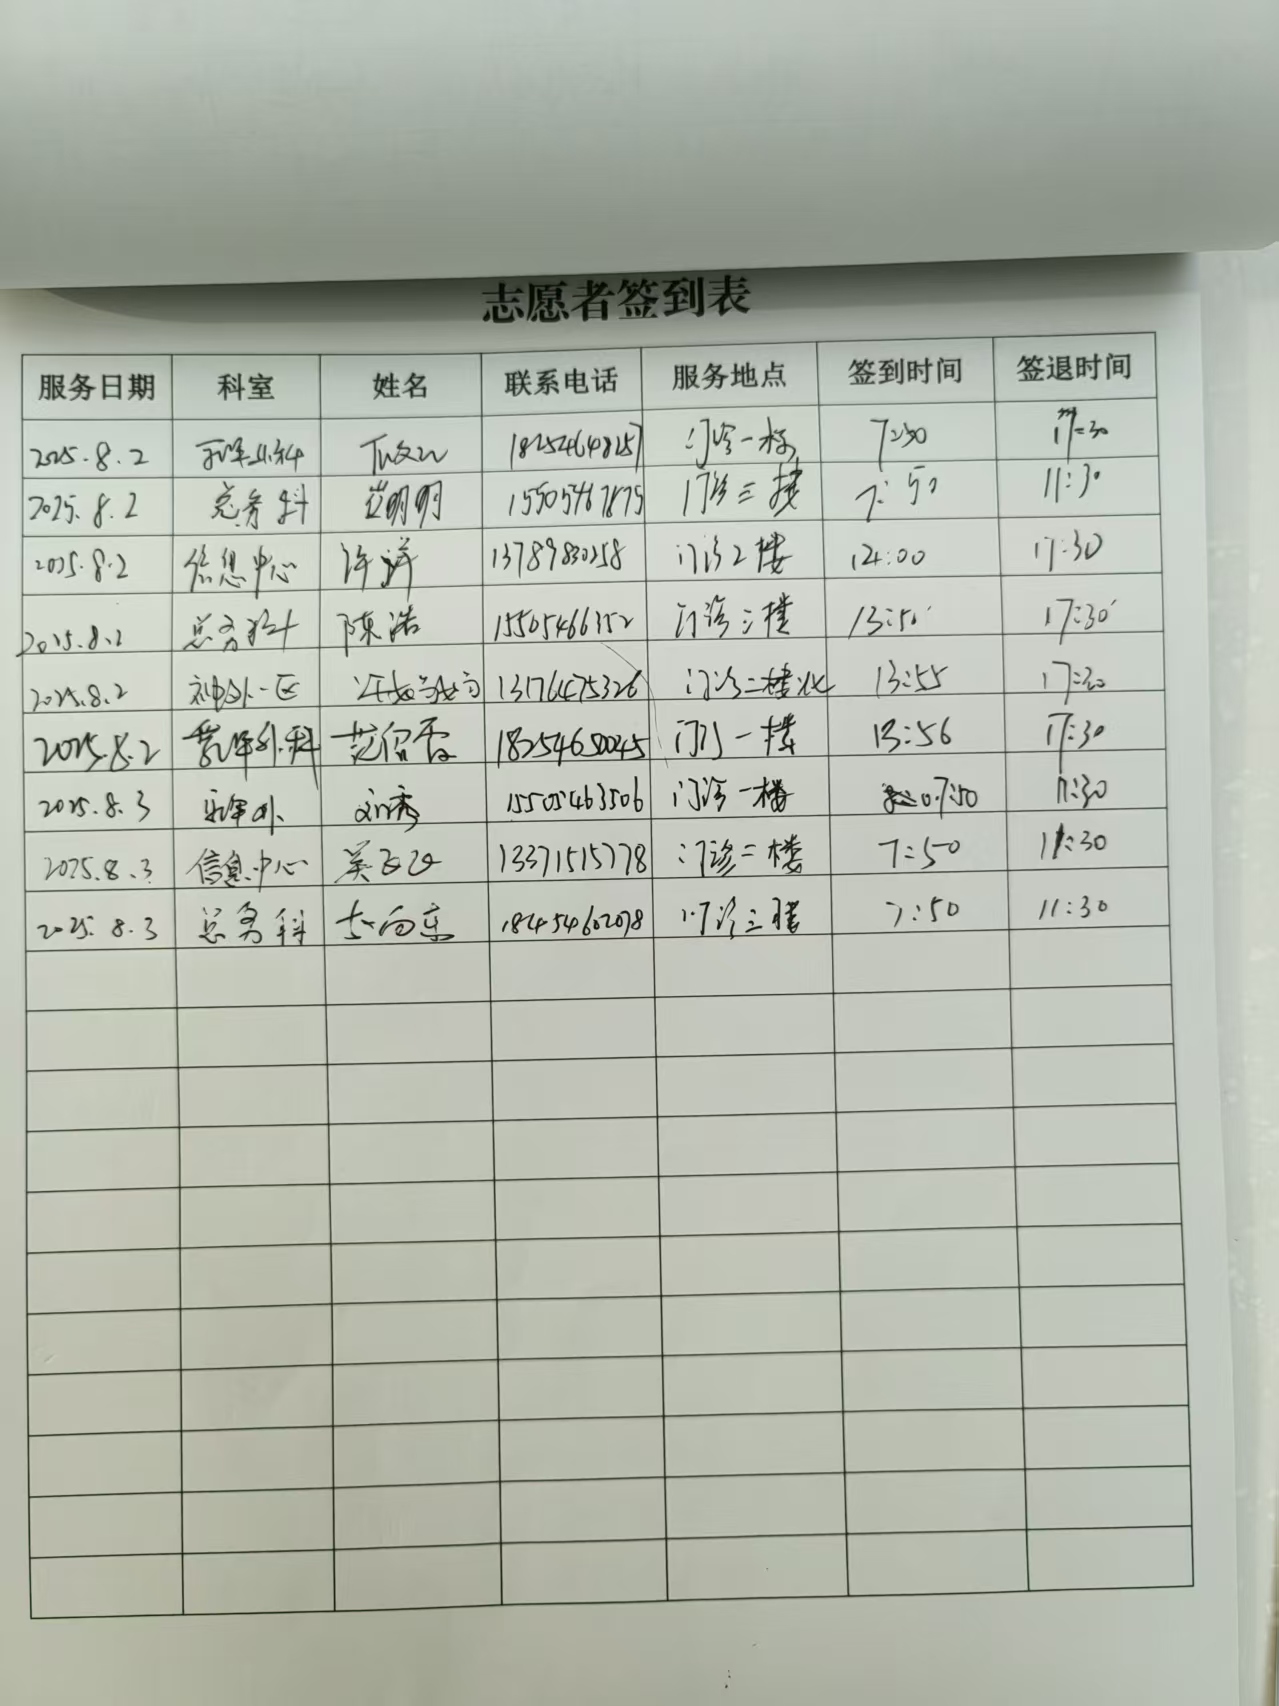 志愿者签到表
服务日期 科室 姓名 联系电话 服务地点 签到时间 签退时间
2025.8.2 18254648257 门诊一楼 7:50 17:30
2025.8.2 总务科 崔明明 15505467875 门诊三楼 7:50 11:30
2025.8.2 信息中心 许洋 13789830258 门诊2楼 14:00 17:30
2025.8.2 总务科 陈浩 15505466352 门诊三楼 13:50 17:30
2025.8.2 神外一区 13176475326 门诊二楼北 13:55 17:30
2025.8.2 范留香 18254650045 门诊一楼 13:56 17:30
2025.8.3 刘秀 15505463506 门诊一楼 7:50 11:30
2025.8.3 信息中心 吴 13371515778 门诊二楼 7:50 11:30
2025.8.3 总务科 李向东 18454602078 门诊三楼 7:50 11:30